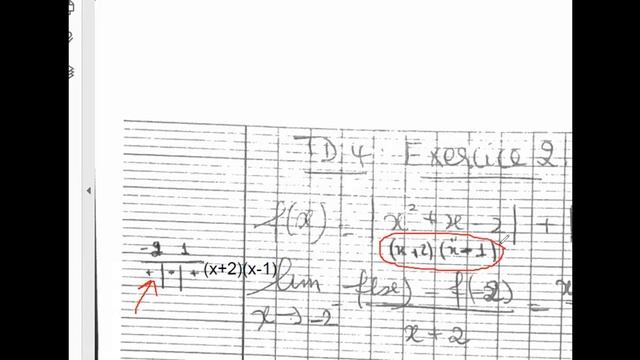 TD 4 Exercice 2
f(x) = |x² + x - 2| + |
(x+2)(x-1)
-2 1
+ | - | + (x+2)(x-1)
lim f(x) - f(-2) = x
x → -2 x + 2